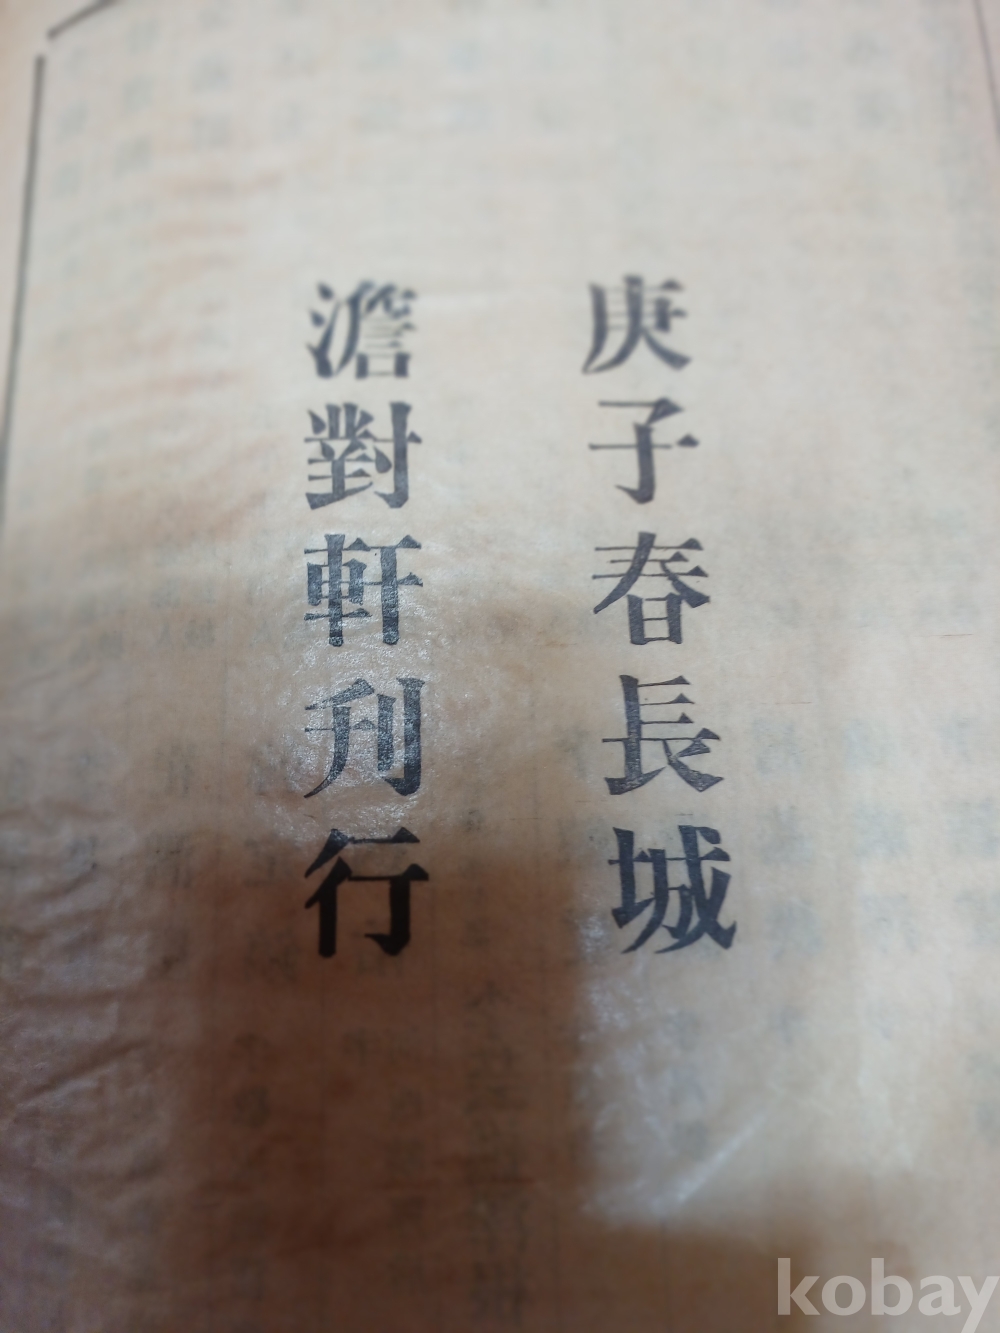 庚子春長城
澹對軒刋行
kobay